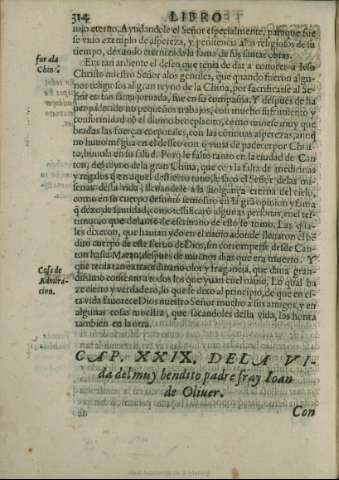 314 LIBRO
nio eterno. Ayudandole el Señor especialmente, porque fue
se viuo exemplo de aspereza, y penitencia a los religiosos de su
tiempo, dexando eternizada la fama de sus santas obras.
Era tan ardiente el desseo que tenia de dar a conocer a Iesu
Christo nuestro Señor a los gentiles, que quando fueron algu-
nos religiosos al gran reyno de la China, por sacrificarse al Se-
ñor en tan santa jornada, fue en su compañia. Y despues de ha
ber padecido no pequeños trabajos, con mucho sufrimiento y
conformidad con el diuino beneplacito, como tuuiesse muy que
bradas las fuerças corporales, con las continuas asperezas, aunq̃
no huuo mēgua en el desseo con q̃ viuia de padecer por Chris-
to, huuola en su salud. Pero le falto tanto en la ciudad de Can
ton, del reyno de la gran China, que es a la falta de medicinas
y regalos q̃ en aquel destierro tuuo, le saco el Señor de las mi-
serias desta vida, lleuandole a la holgança eterna del cielo,
como en su cuerpo
q̃ dexo de santidad, como testificarō algunas personas, en el tes-
timonio que delante de escriuano de esto se tomo. Las qua-
les dixeron, que hauian ydo en el nauio adonde lleuaron el bē
dito cuerpo de este sieruo de Dios, sin corromperse desde Can
ton hasta Macan, despues de muchos dias que era muerto. Y
que tenia tan extraordinario olor y fragancia, que daua gran-
dissimo consuelo a todos los que yuan en el nauio. Lo qual ha
ze cierto y verdadero, lo que se dixo al principio, de que en es-
ta vida fauorece Dios nuestro Señor mucho a sus amigos, y en
algunas cosas muestra, que sacandoles desta vida, los honra
tambien en la otra.
fue ala
China.
Cosa de
Admira-
cion.
CAP. XXIX. DELA VI-
da del muy bendito padre fray Ioan
de Oliuer.
Con